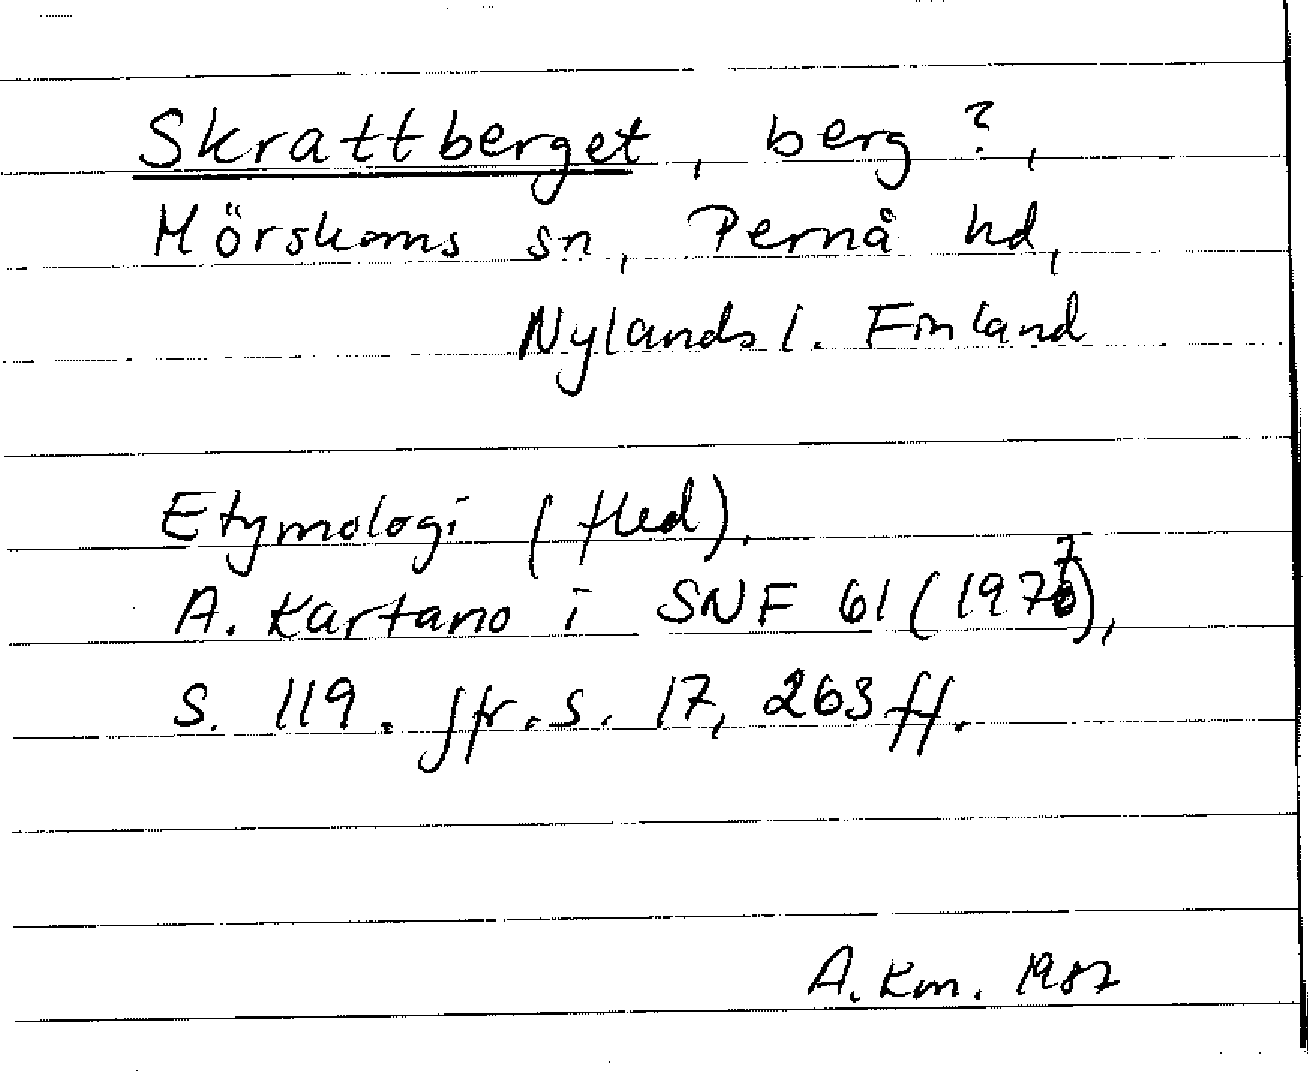 Skrattberget, berg?,
Mörskoms sn, Pernå hd,
Nylands l. Finland
Etymologi (fled).
A. Kartano i SNF 61 (1977),
S. 119. Jfr. s. 17, 263 ff.
A. Km. 1987